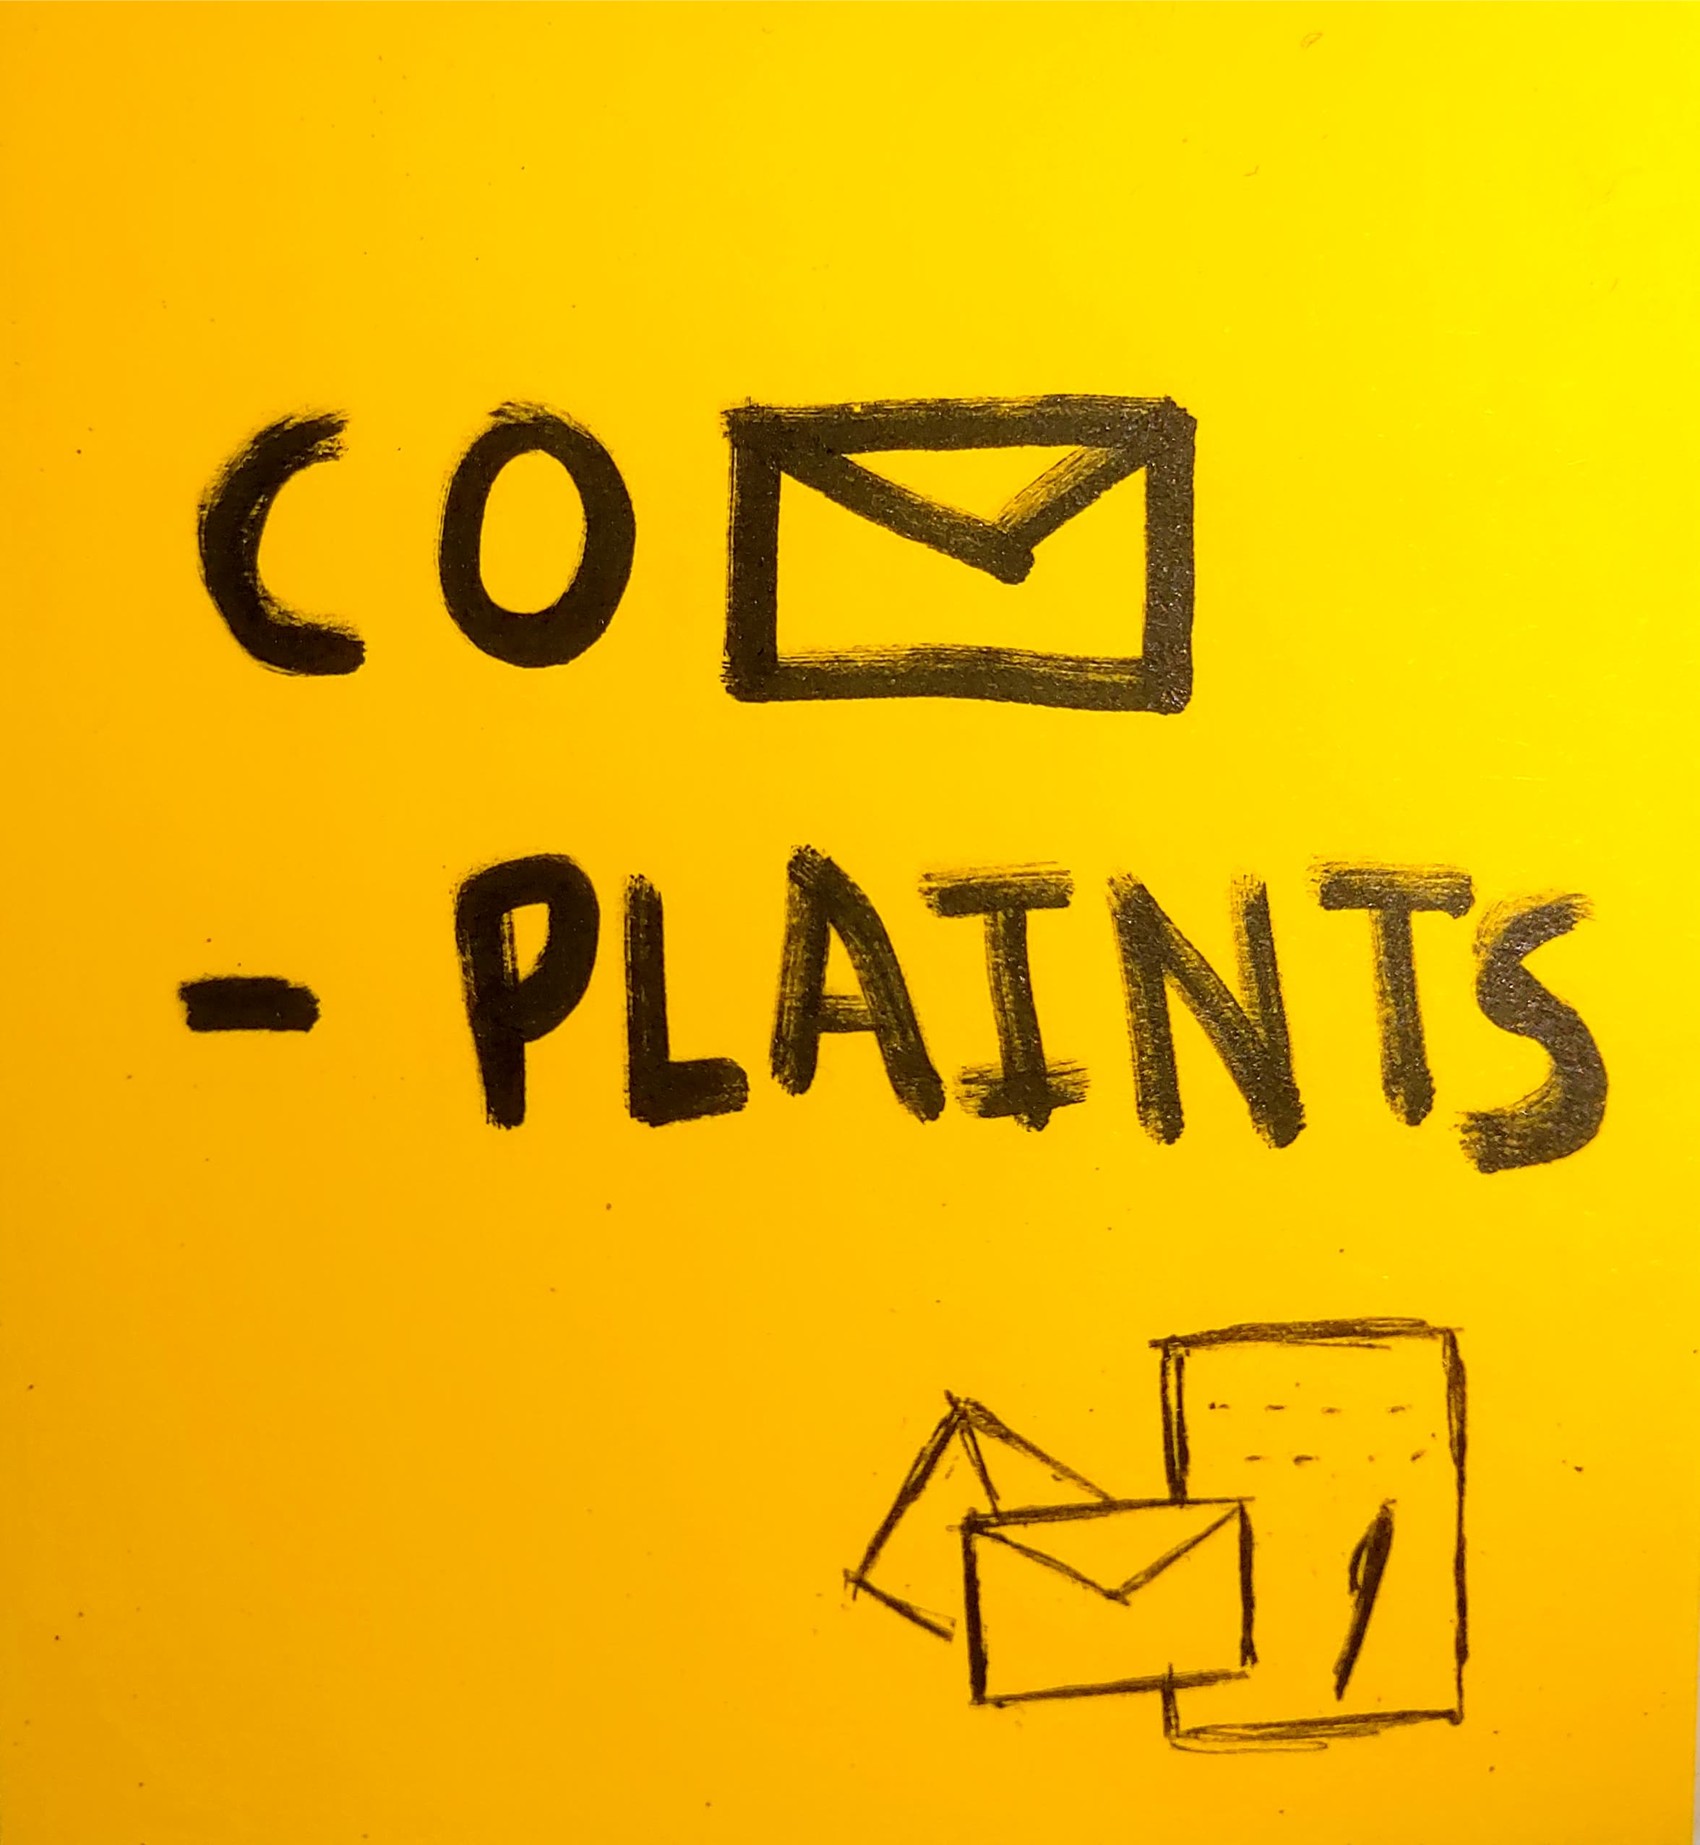 CO✉
- PLAINTS